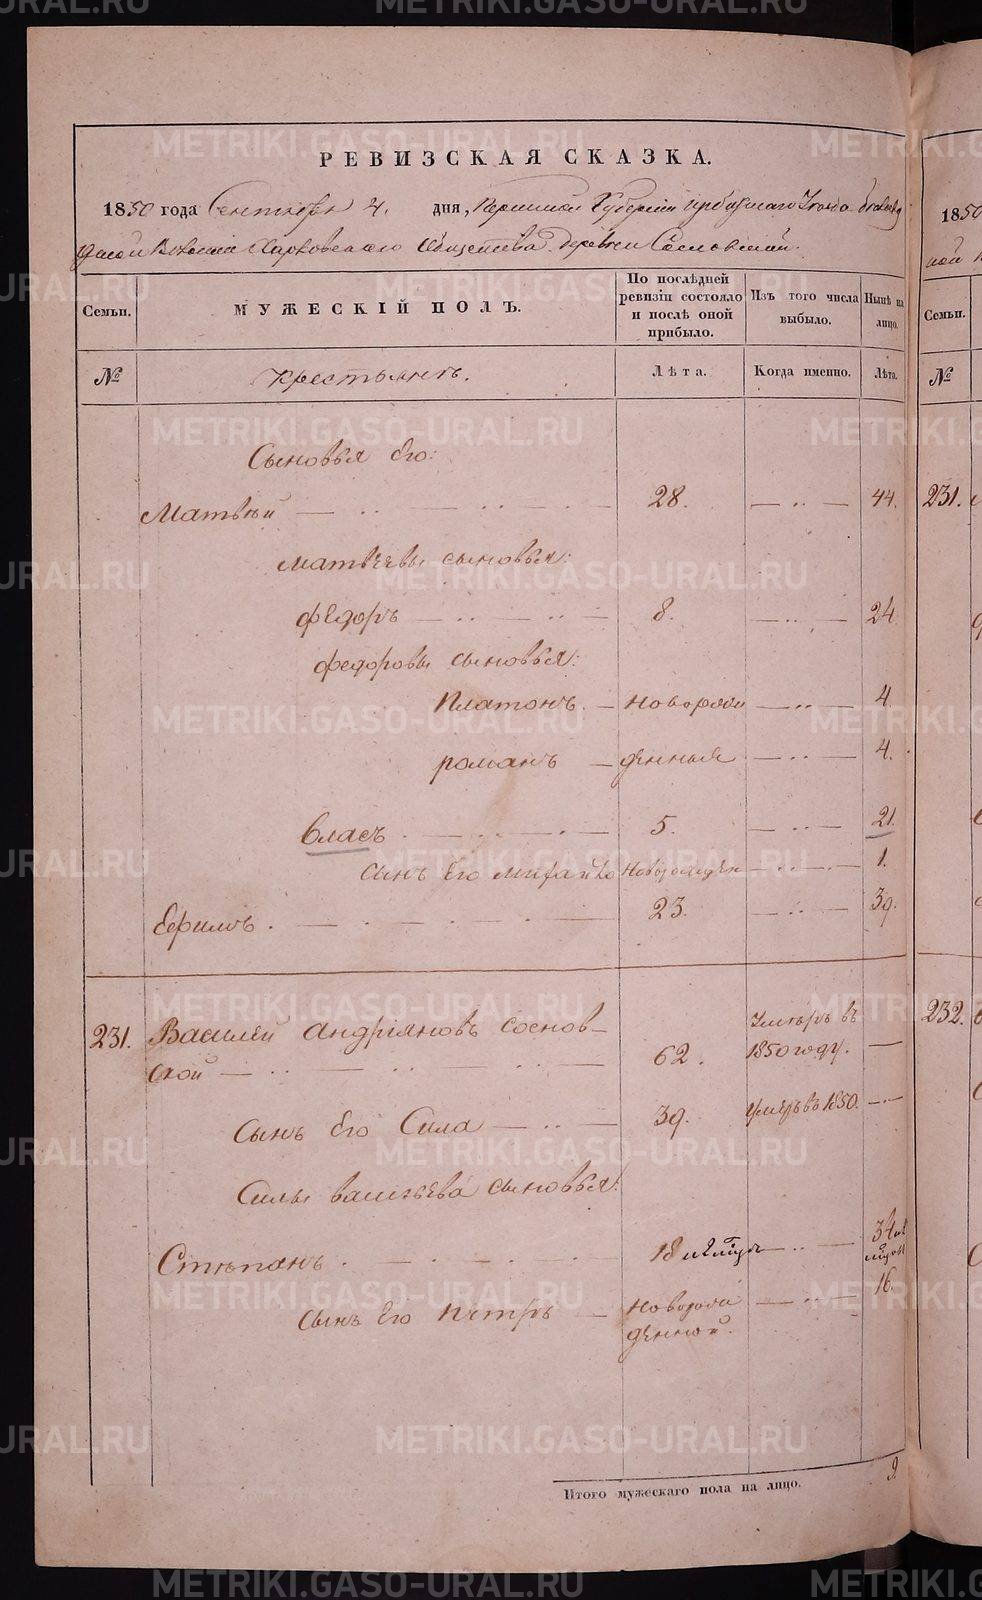 METRIKI.GASO-URAL.RU
РЕВИЗСКАЯ СКАЗКА.
1850 года Сентября 4. дня, Пермской Губернии Ирбитскаго Уезда
Волости Харловскаго Общества Деревни Сосновской.
Семьи.
МУЖЕСКІЙ ПОЛЪ.
По послѣдней ревизіи состояло и послѣ оной прибыло.
Изъ того числа выбыло.
Нынѣ на лицо.
№
Крестьянъ.
Лѣта.
Когда именно.
Лѣта.
Сыновья Его:
Матвѣй 28. — 44.
Матвѣевы сыновья:
Федоръ 8. — 24.
Федоровы сыновья:
Платонъ — новорож — 4.
романъ — денныя — 4.
Власъ 5. — 21.
сынъ Его Новорожден — 1.
23. — 39.
231. Василей Андріяновъ Соснов-
ской 62. Умеръ въ 1850 году. —
сынъ Его Сила 39. Умеръ въ 1850. —
Силы Васильева сыновья:
Степанъ 18
сынъ Его Петръ — Новорож
денной. — 16.
Итого мужескаго пола на лицо. 9
1850
Семьи.
№
231.
232.